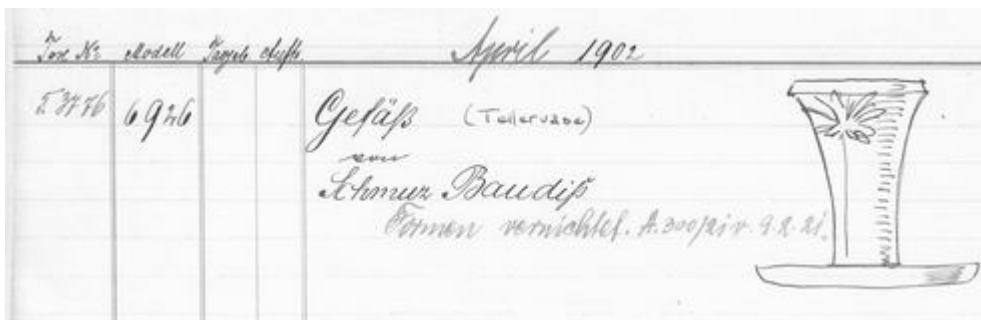 Inv. Nº Modell Tageb. Auftr. April 1902
6926 Gefäß (Tellervase)
von
Schmuz Baudiß
Formen vernichtet. A. 300/21 v. 9.2.21.